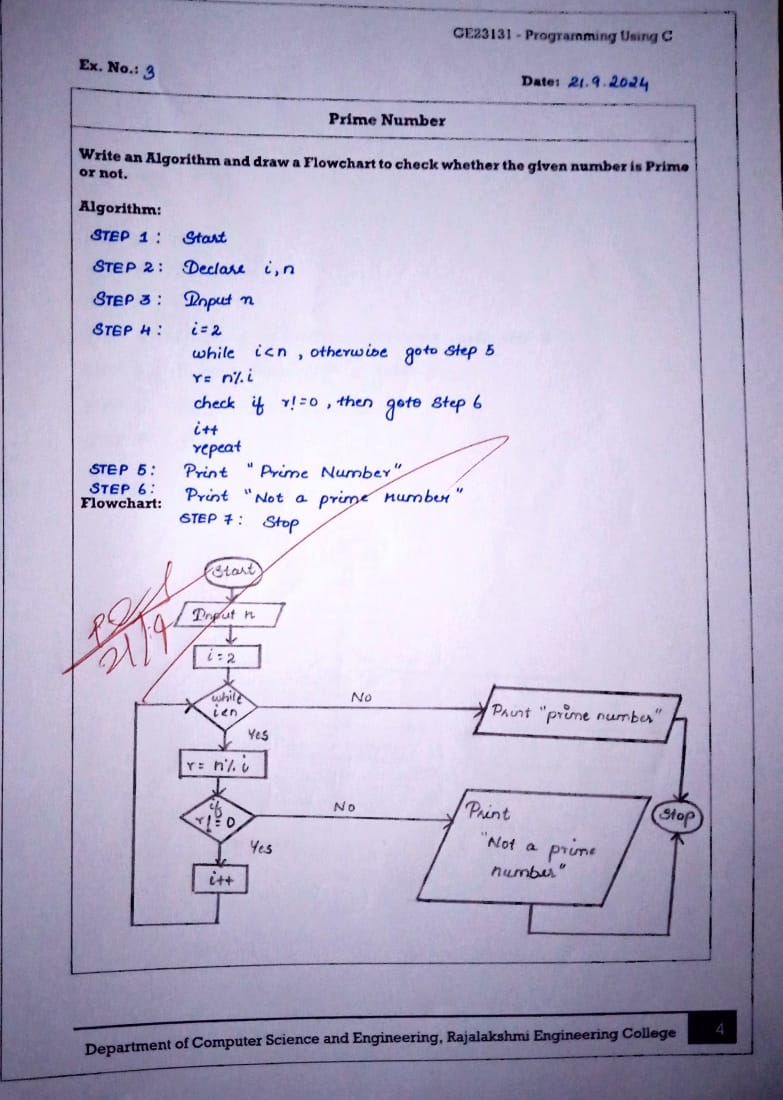 GE23131 - Programming Using C
Ex. No.: 3
Date: 21.9.2024
Prime Number
Write an Algorithm and draw a Flowchart to check whether the given number is Prime
or not.
Algorithm:
STEP 1: Start
STEP 2: Declare i,n
STEP 3: Input n
STEP 4: i=2
while i<n, otherwise goto Step 5
r= n%i
check if r!=0, then goto Step 6
i++
repeat
STEP 5: Print "Prime Number"
STEP 6: Print "Not a prime number"
Flowchart:
STEP 7: Stop
Start
Input n
i=2
while
i<n
No
Print "prime number"
Yes
r= n% i
if
r!=0
No
Print
"Not a prime
number"
Stop
Yes
i++
21/9
Department of Computer Science and Engineering, Rajalakshmi Engineering College
4